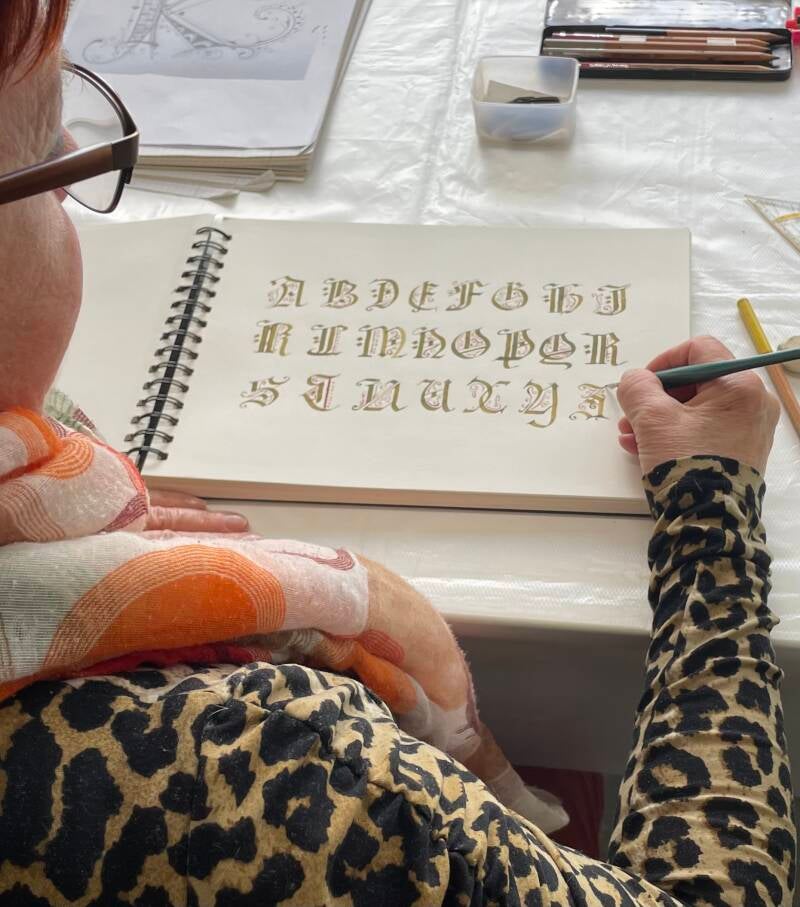 A B D E F G H I
K L M N O P Q R
S T V U X Y Z